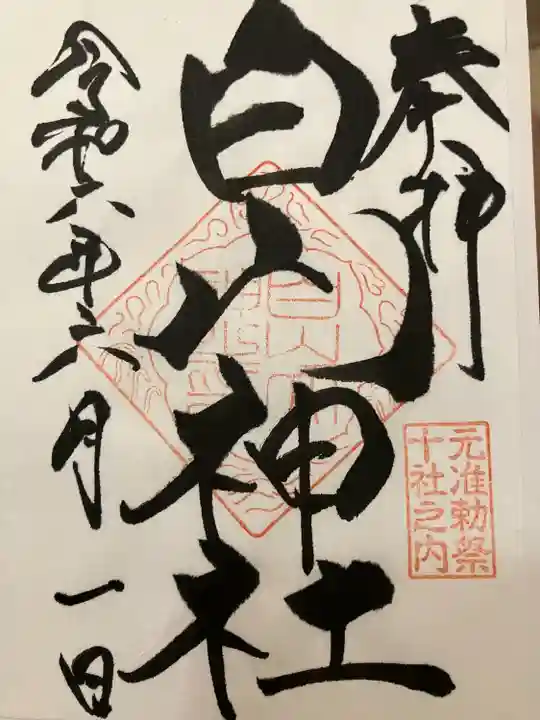 奉拝
元准勅祭
十社之内
白山神社
令和六年六月一日